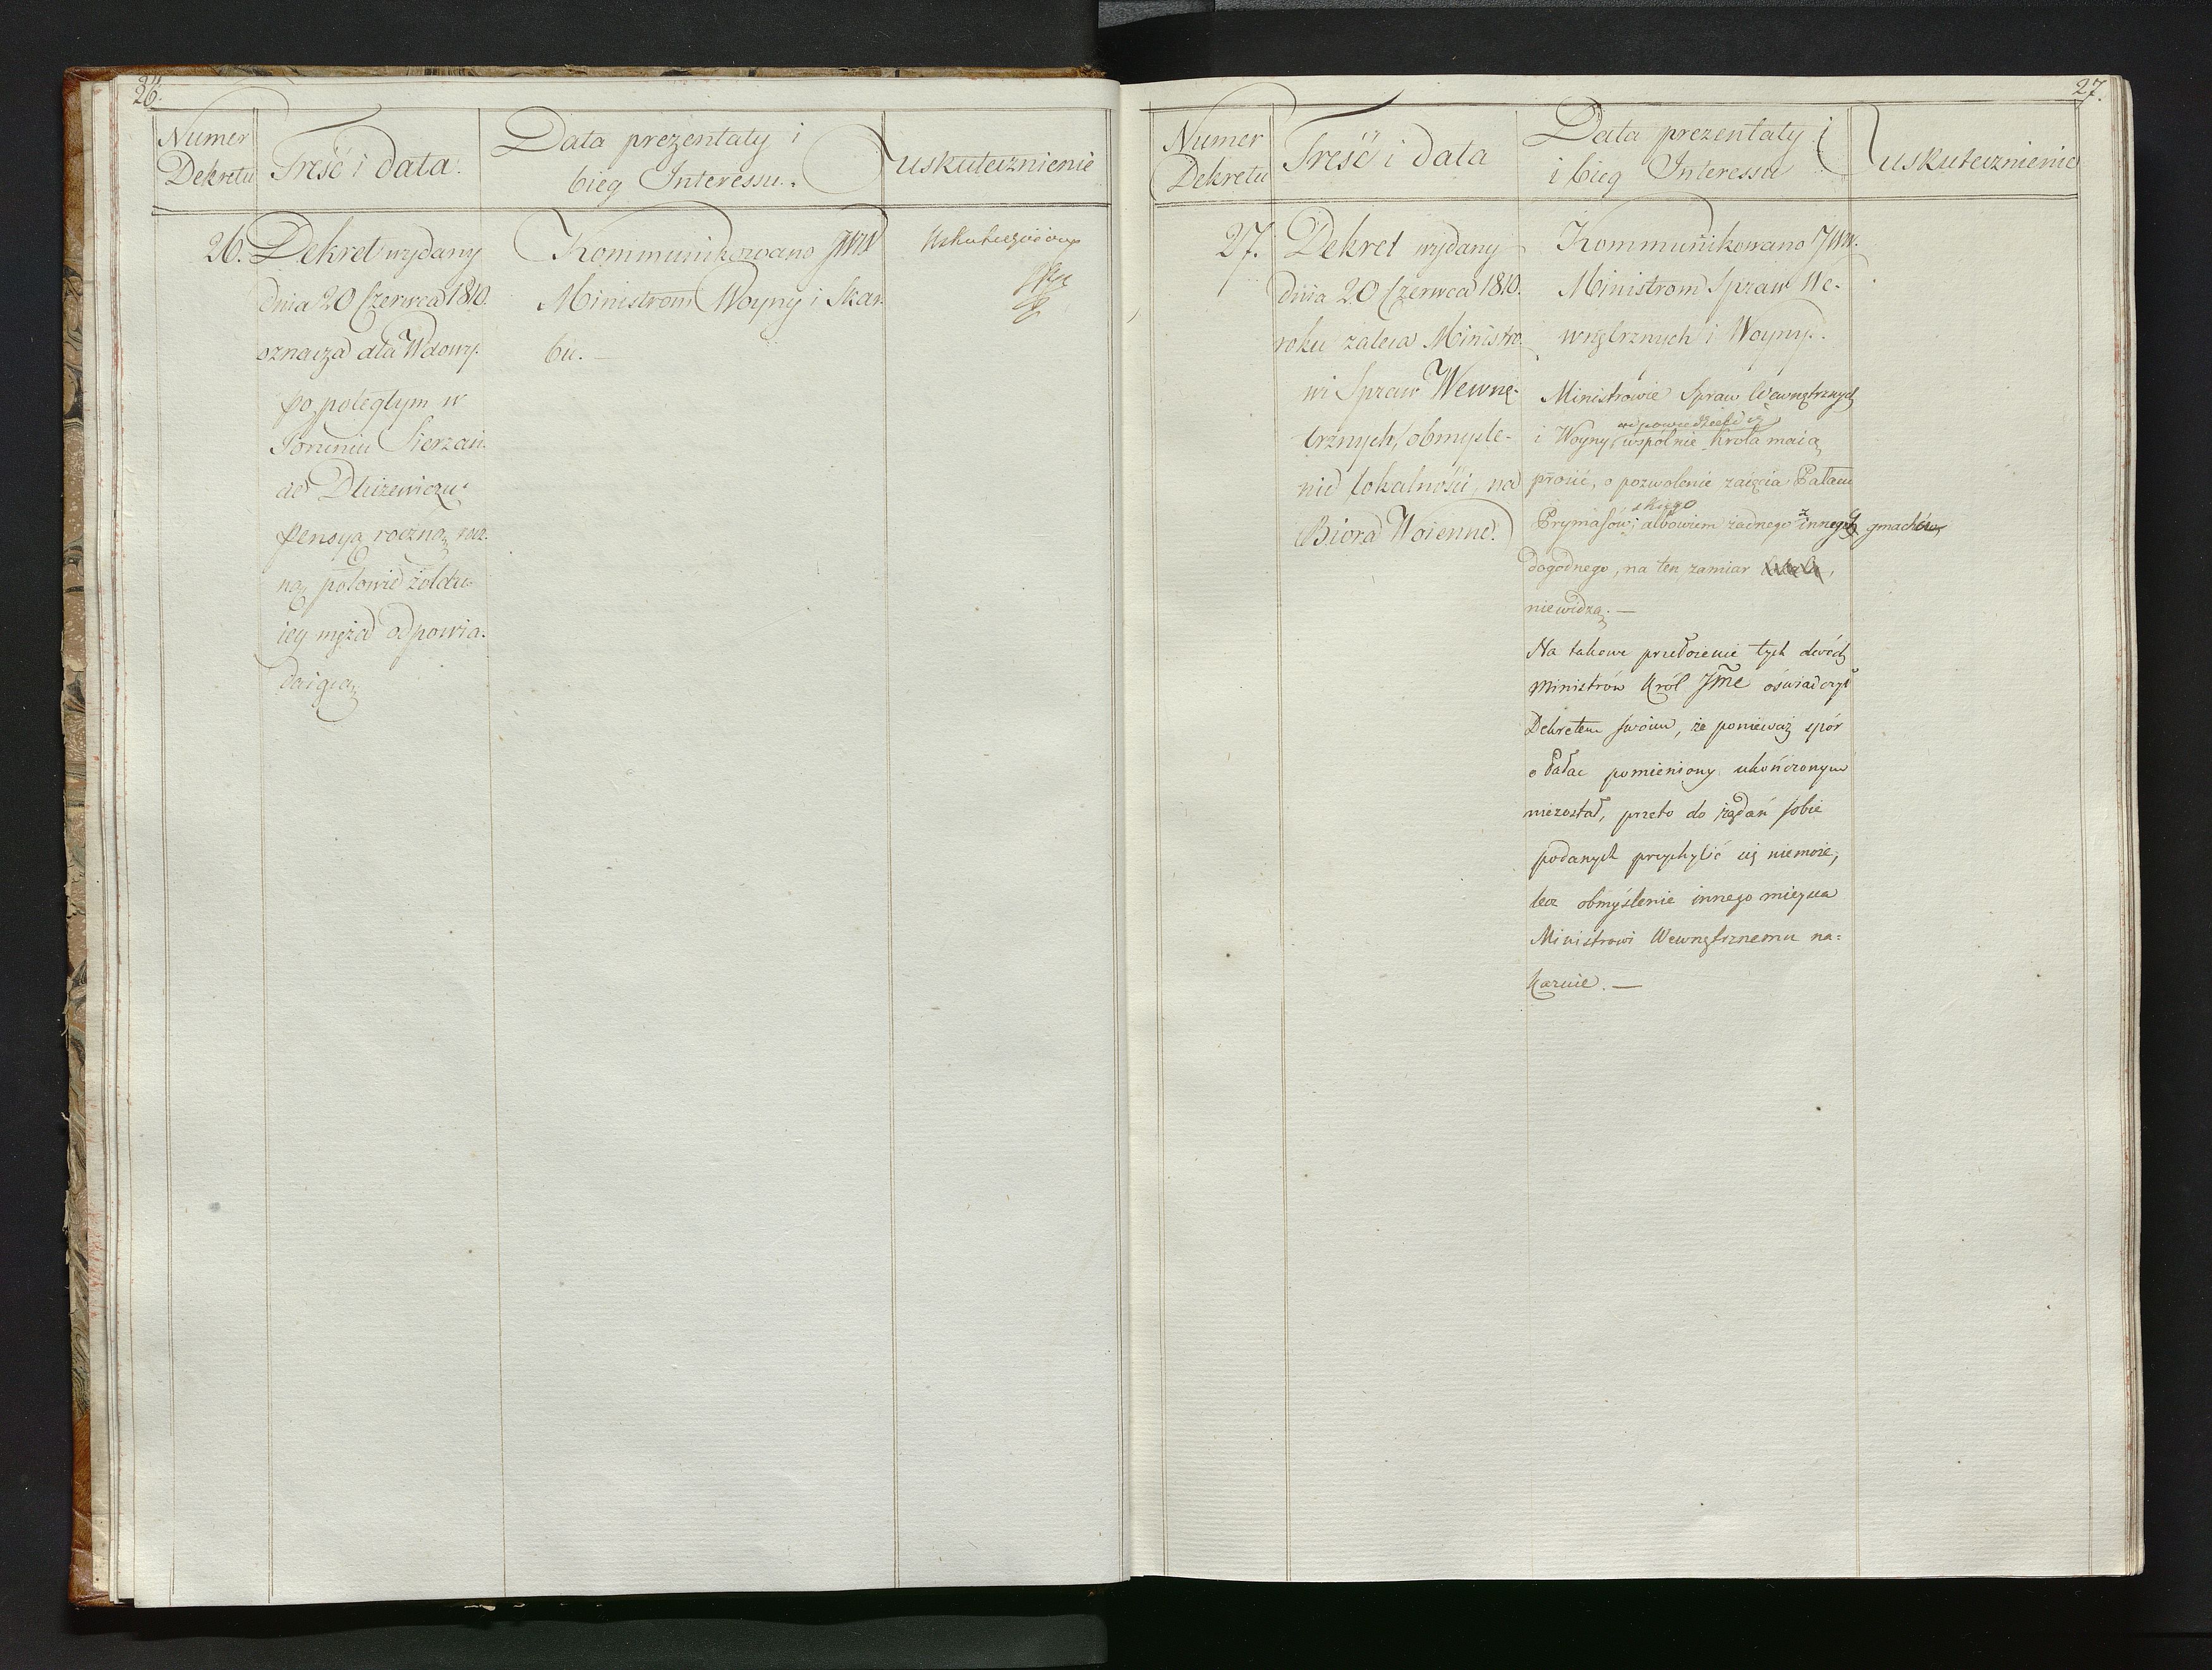 26.
Numer
Dekretu
Treść i data.
Data prezentaty i
bieg Interessu.
uskutecznienie
26. Dekret wydany
dnia 20 Czerwca 1810.
oznacza dla Wdowy
po poległym w
Toruniu Sierżan-
cie Dłużewiczu
pensyą roczną rocz-
ną połowie żołdu
iey męża odpowia-
daiącą
Kommunikowano JWW
Ministrom Woyny i Skar-
bu. —
27.
Numer
Dekretu
Treść i data
Data prezentaty i
i bieg Interessu
uskutecznienie
27. Dekret wydany
dnia 20 Czerwca 1810.
roku zaleca Ministro-
wi Spraw Wewnę-
trznych, obmyśle-
nie lokalności na
Biora Woienne.
Kommunikowano JWW.
Ministrom Spraw We-
wnętrznych i Woyny.
Ministrowie Spraw Wewnętrznych
i Woyny wspólnie Króla maią
prosić, o pozwolenie zaięcia Pałacu
skiego
Prymasow; albowiem żadnego z innych gmachów
dogodnego, na ten zamiar
niewidzą. —
Na takowe przełożenie tych dwóch
Ministrów Król Jme oświadczył
Dekretem swoim, że ponieważ spór
o Pałac pomieniony ukończonym
niezostał, przeto do żądań sobie
podanych przychylić się niemoże,
lecz obmyślenie innego mieysca
Ministrowi Wewnętrznemu na-
kazuie. —